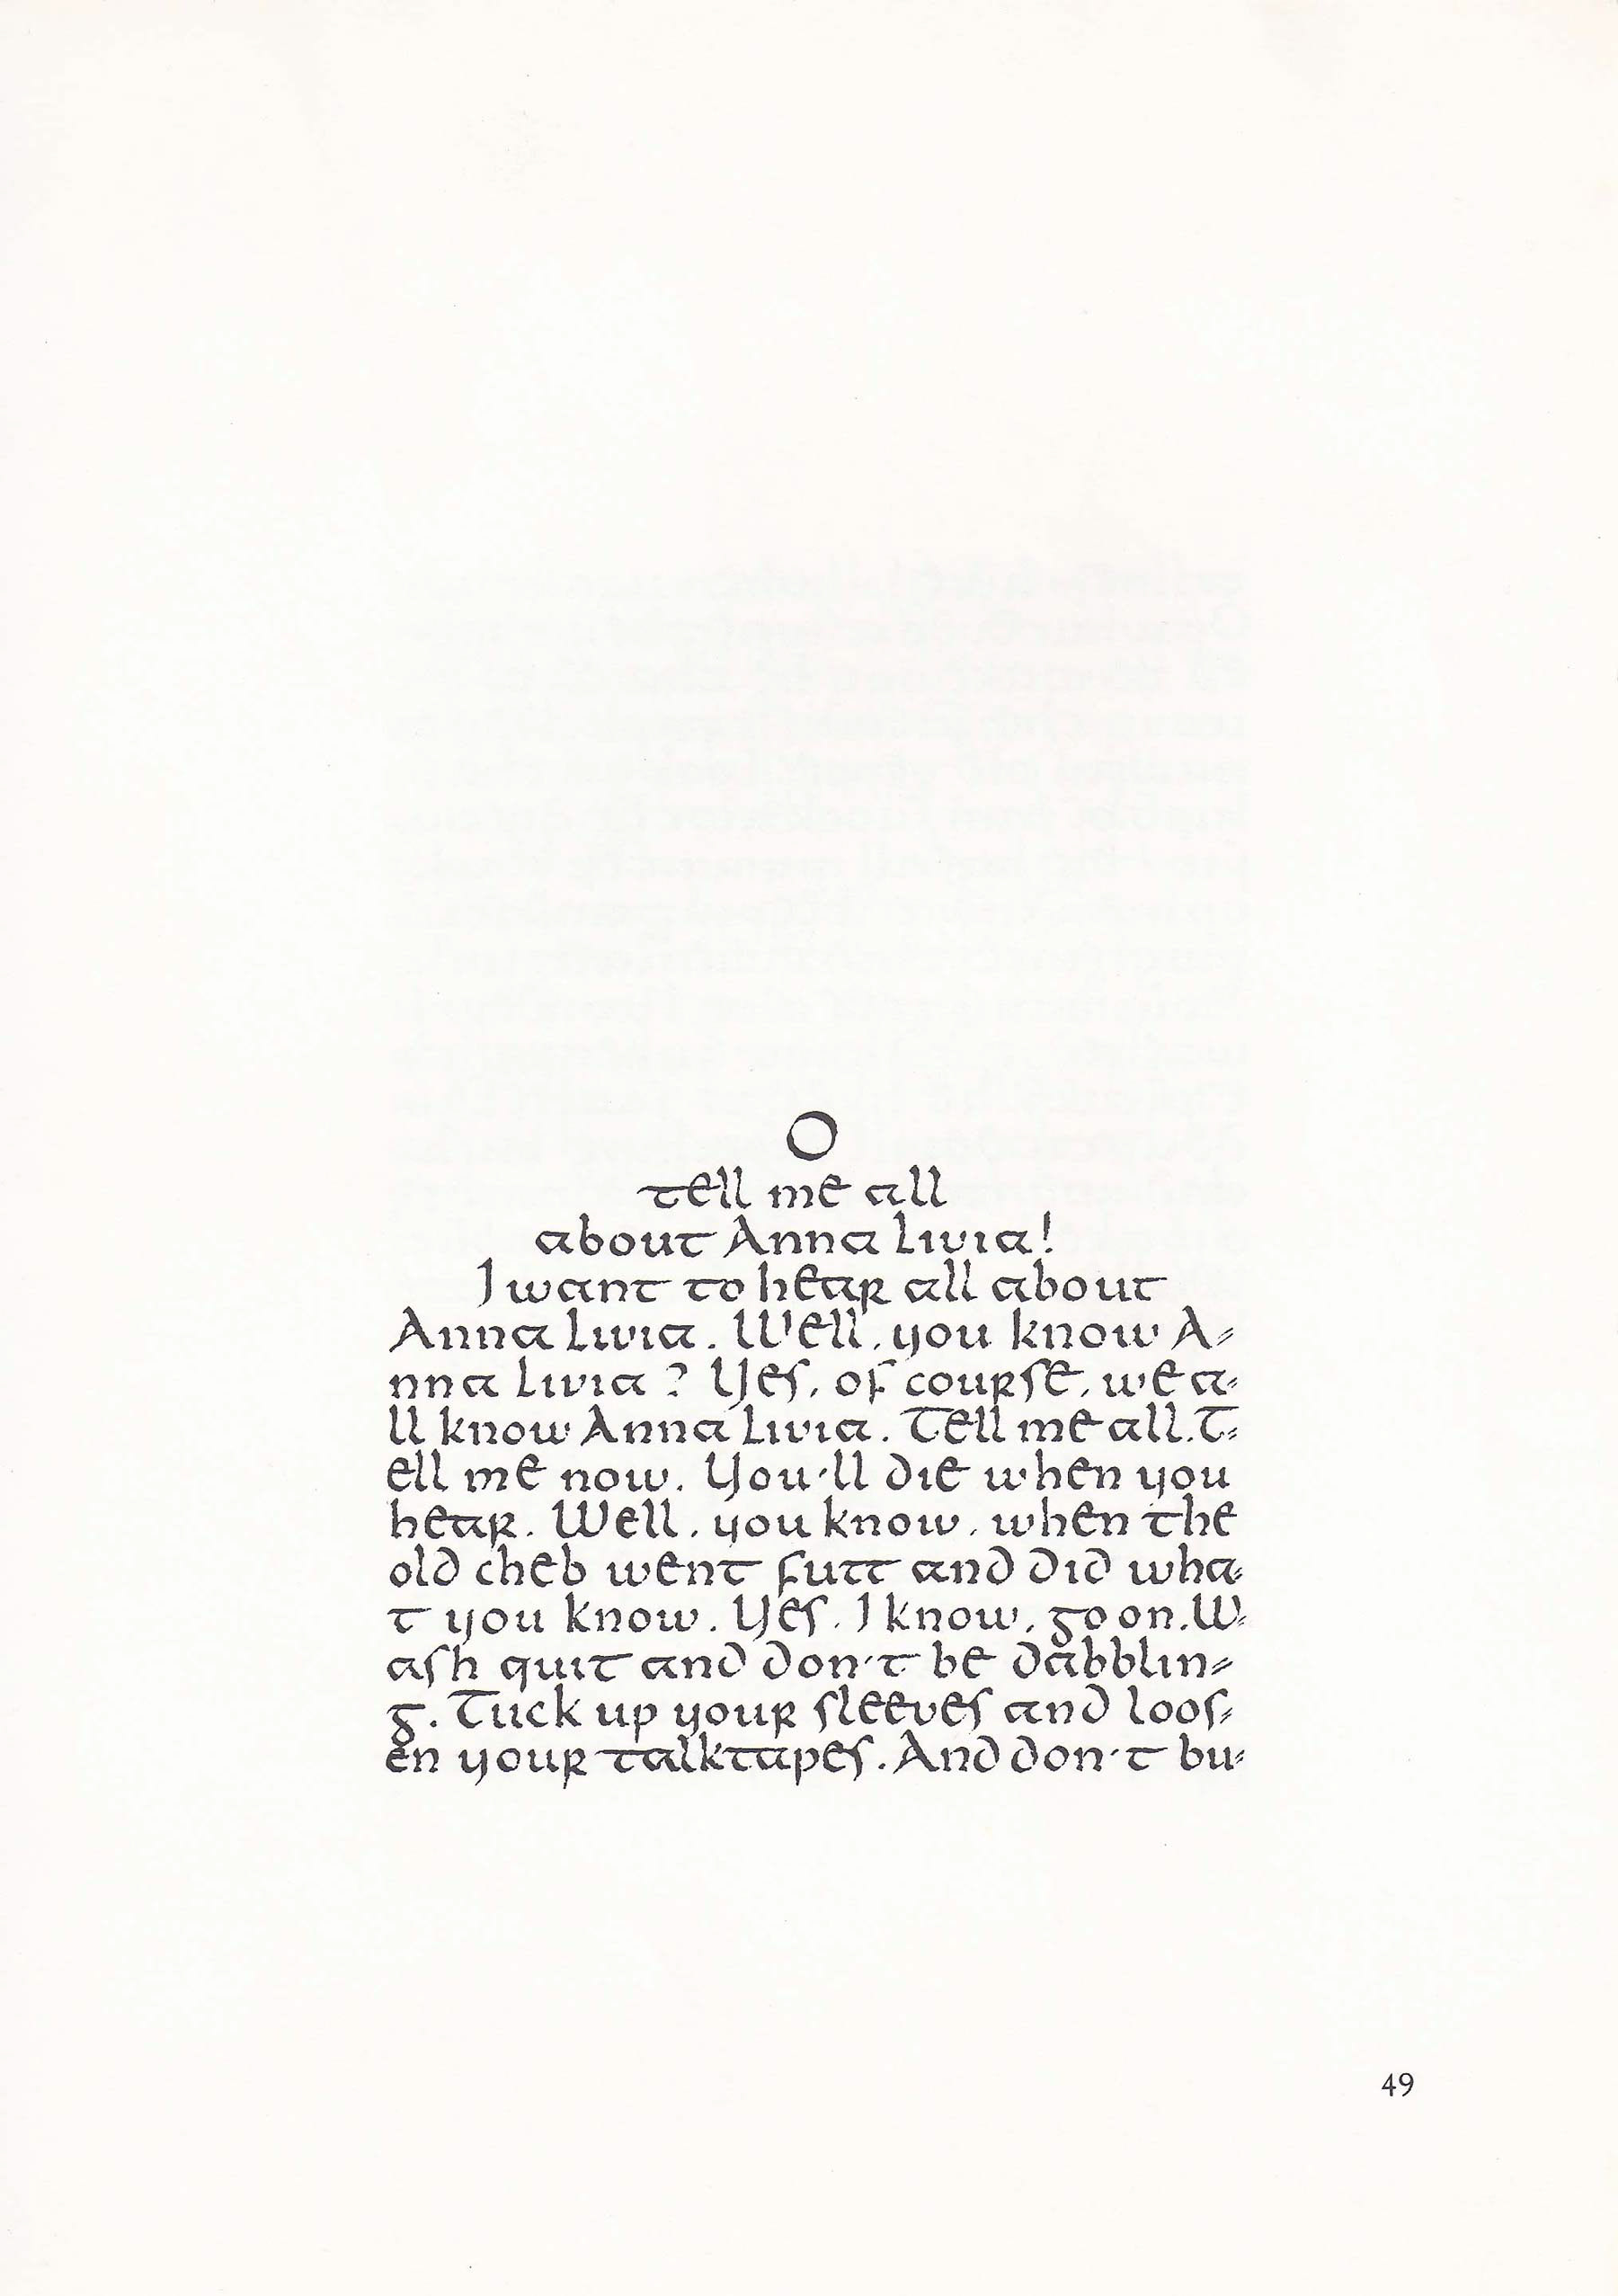 O
tell me all
about Anna Livia!
I want to hear all about
Anna Livia. Well, you know A-
nna Livia? Yes, of course, we a-
ll know Anna Livia. Tell me all. T-
ell me now. You'll die when you
hear. Well, you know, when the
old cheb went futt and did wha-
t you know. Yes, I know, go on. W-
ash quit and don't be dabblin-
g. Tuck up your sleeves and loos-
en your talktapes. And don't bu-
49